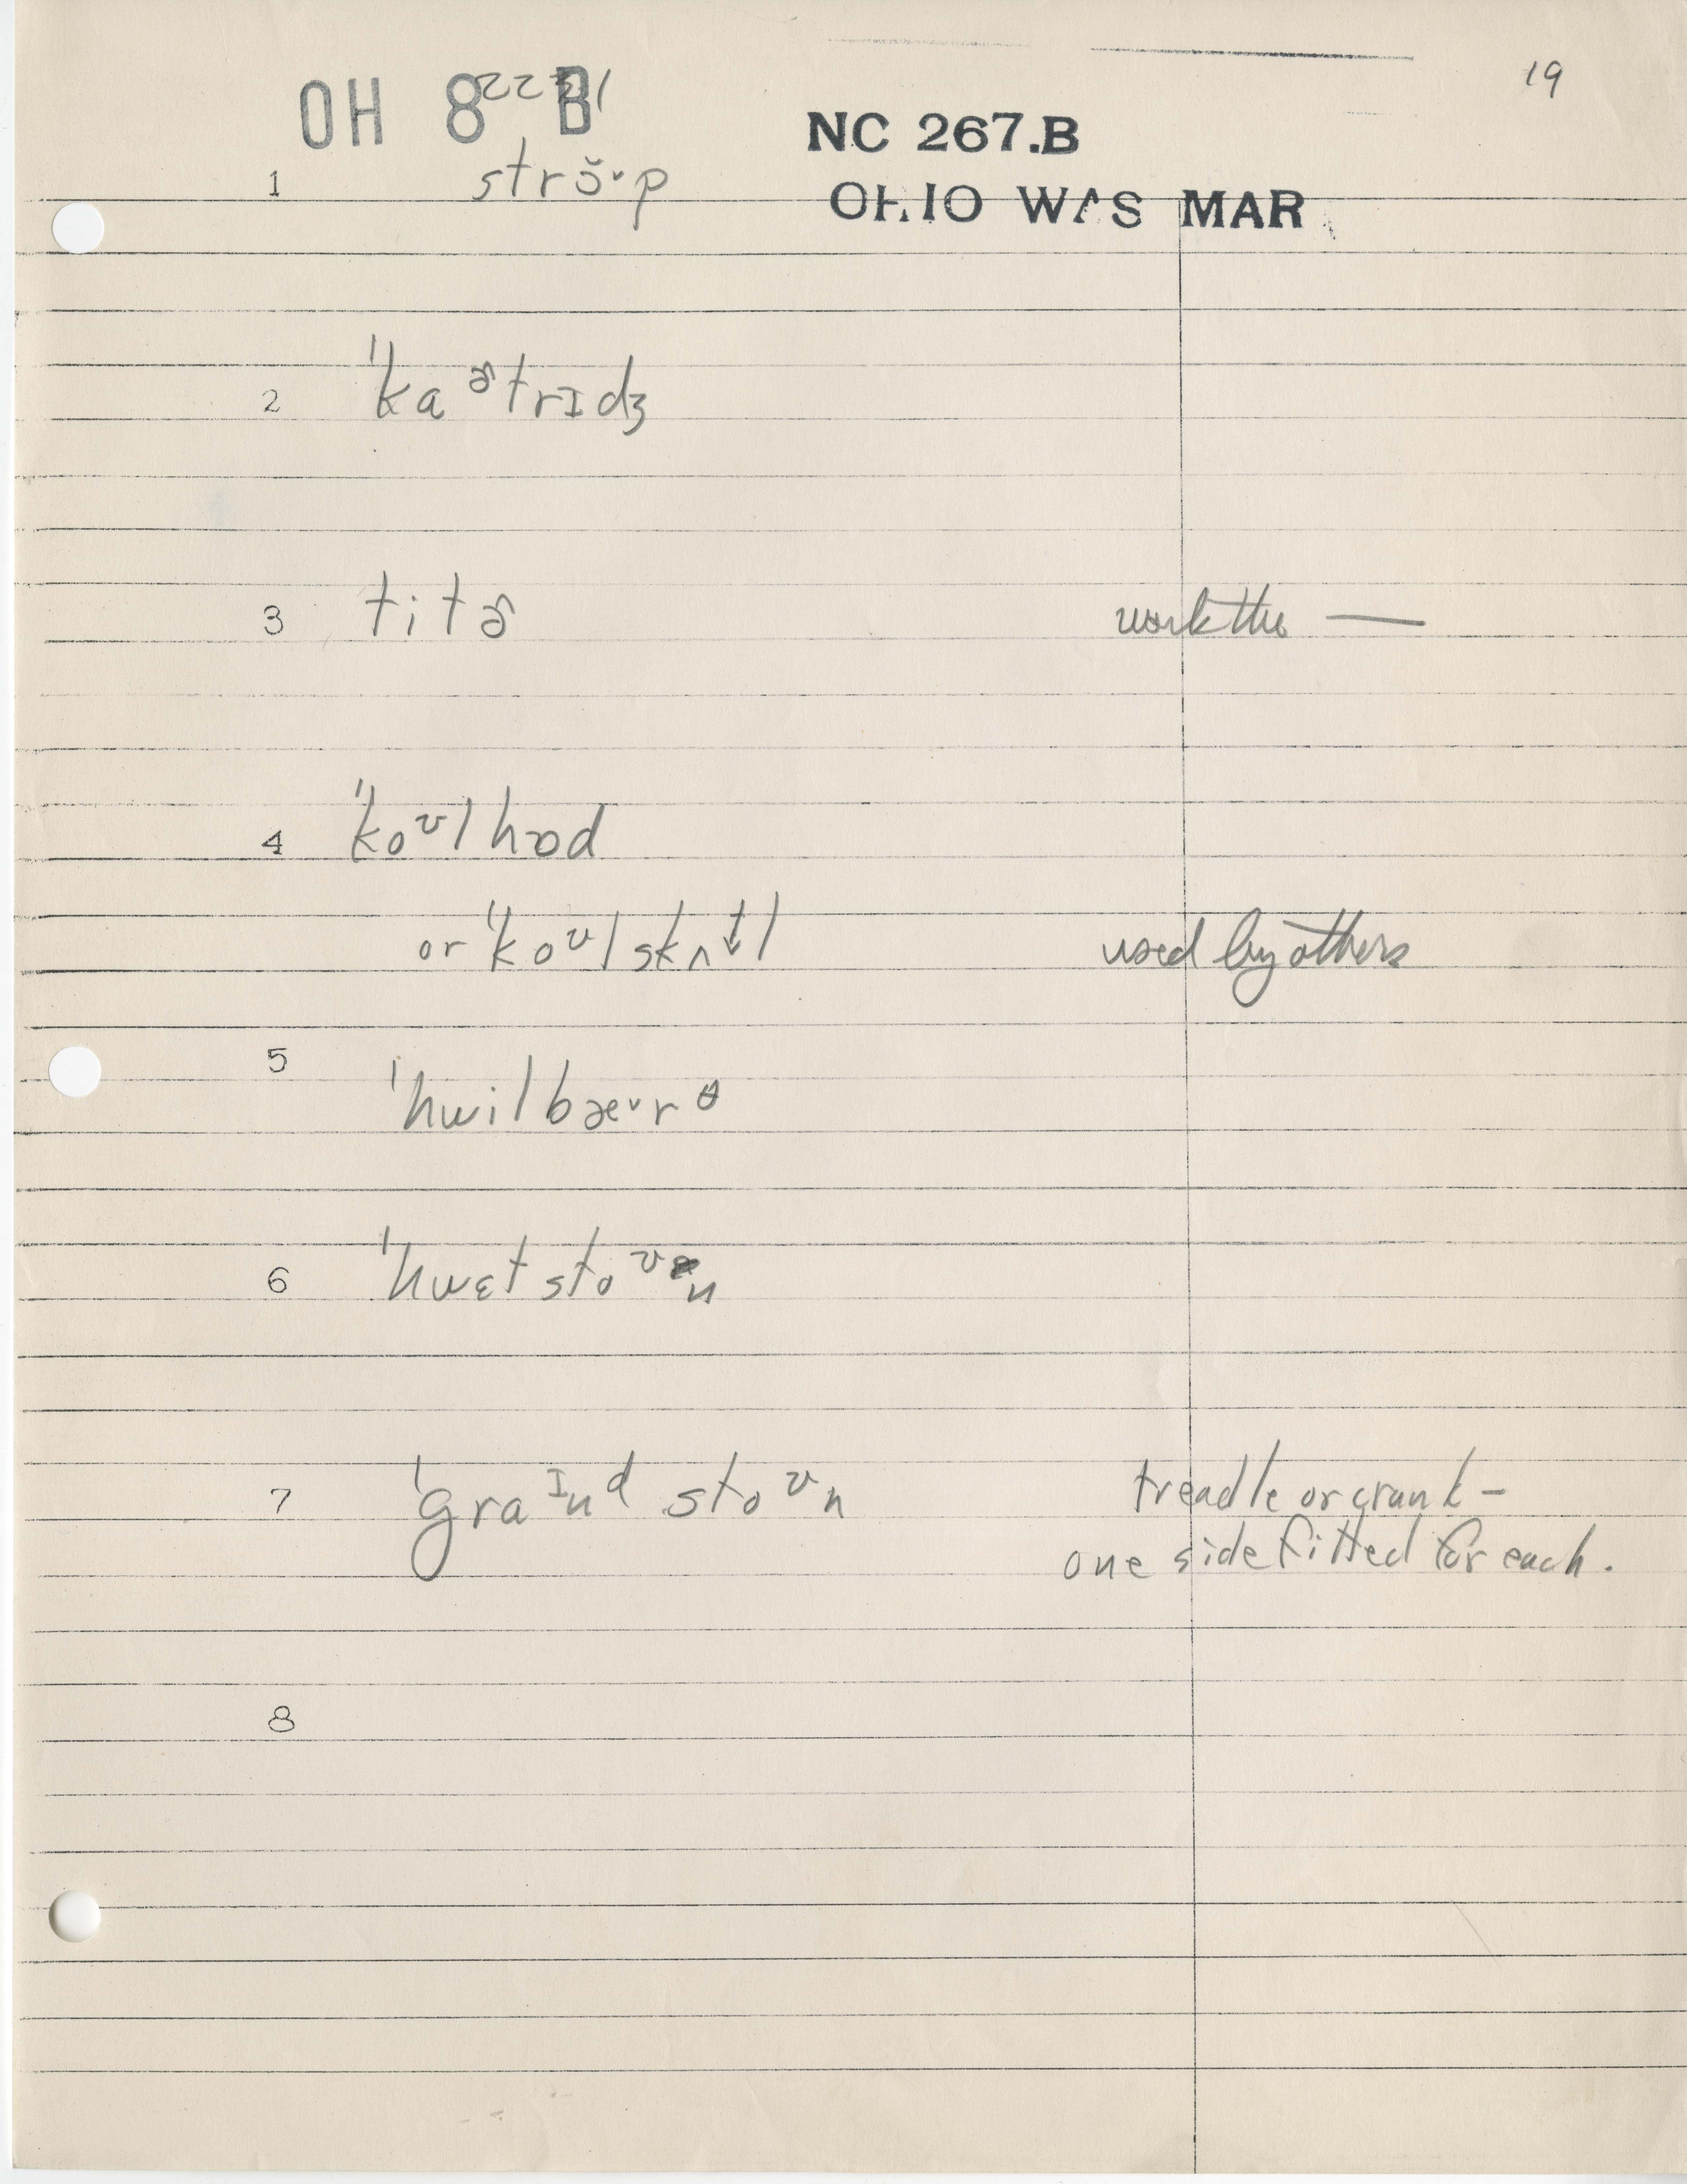 19
OH 8 B
NC 267.B
1 strɔ̆˞p
OHIO WAS MAR
2 ˈkaɚtrɪdʒ
3 titɚ work the —
4 ˈkoʊlhɒd
or ˈkoʊlskʌt̬l used by others
5 ˈhwilbæ˞rɵ
6 ˈhwɛtstoʊn
7 ˈgraɪnd stoʊn treadle or crank –
one side fitted for each.
8